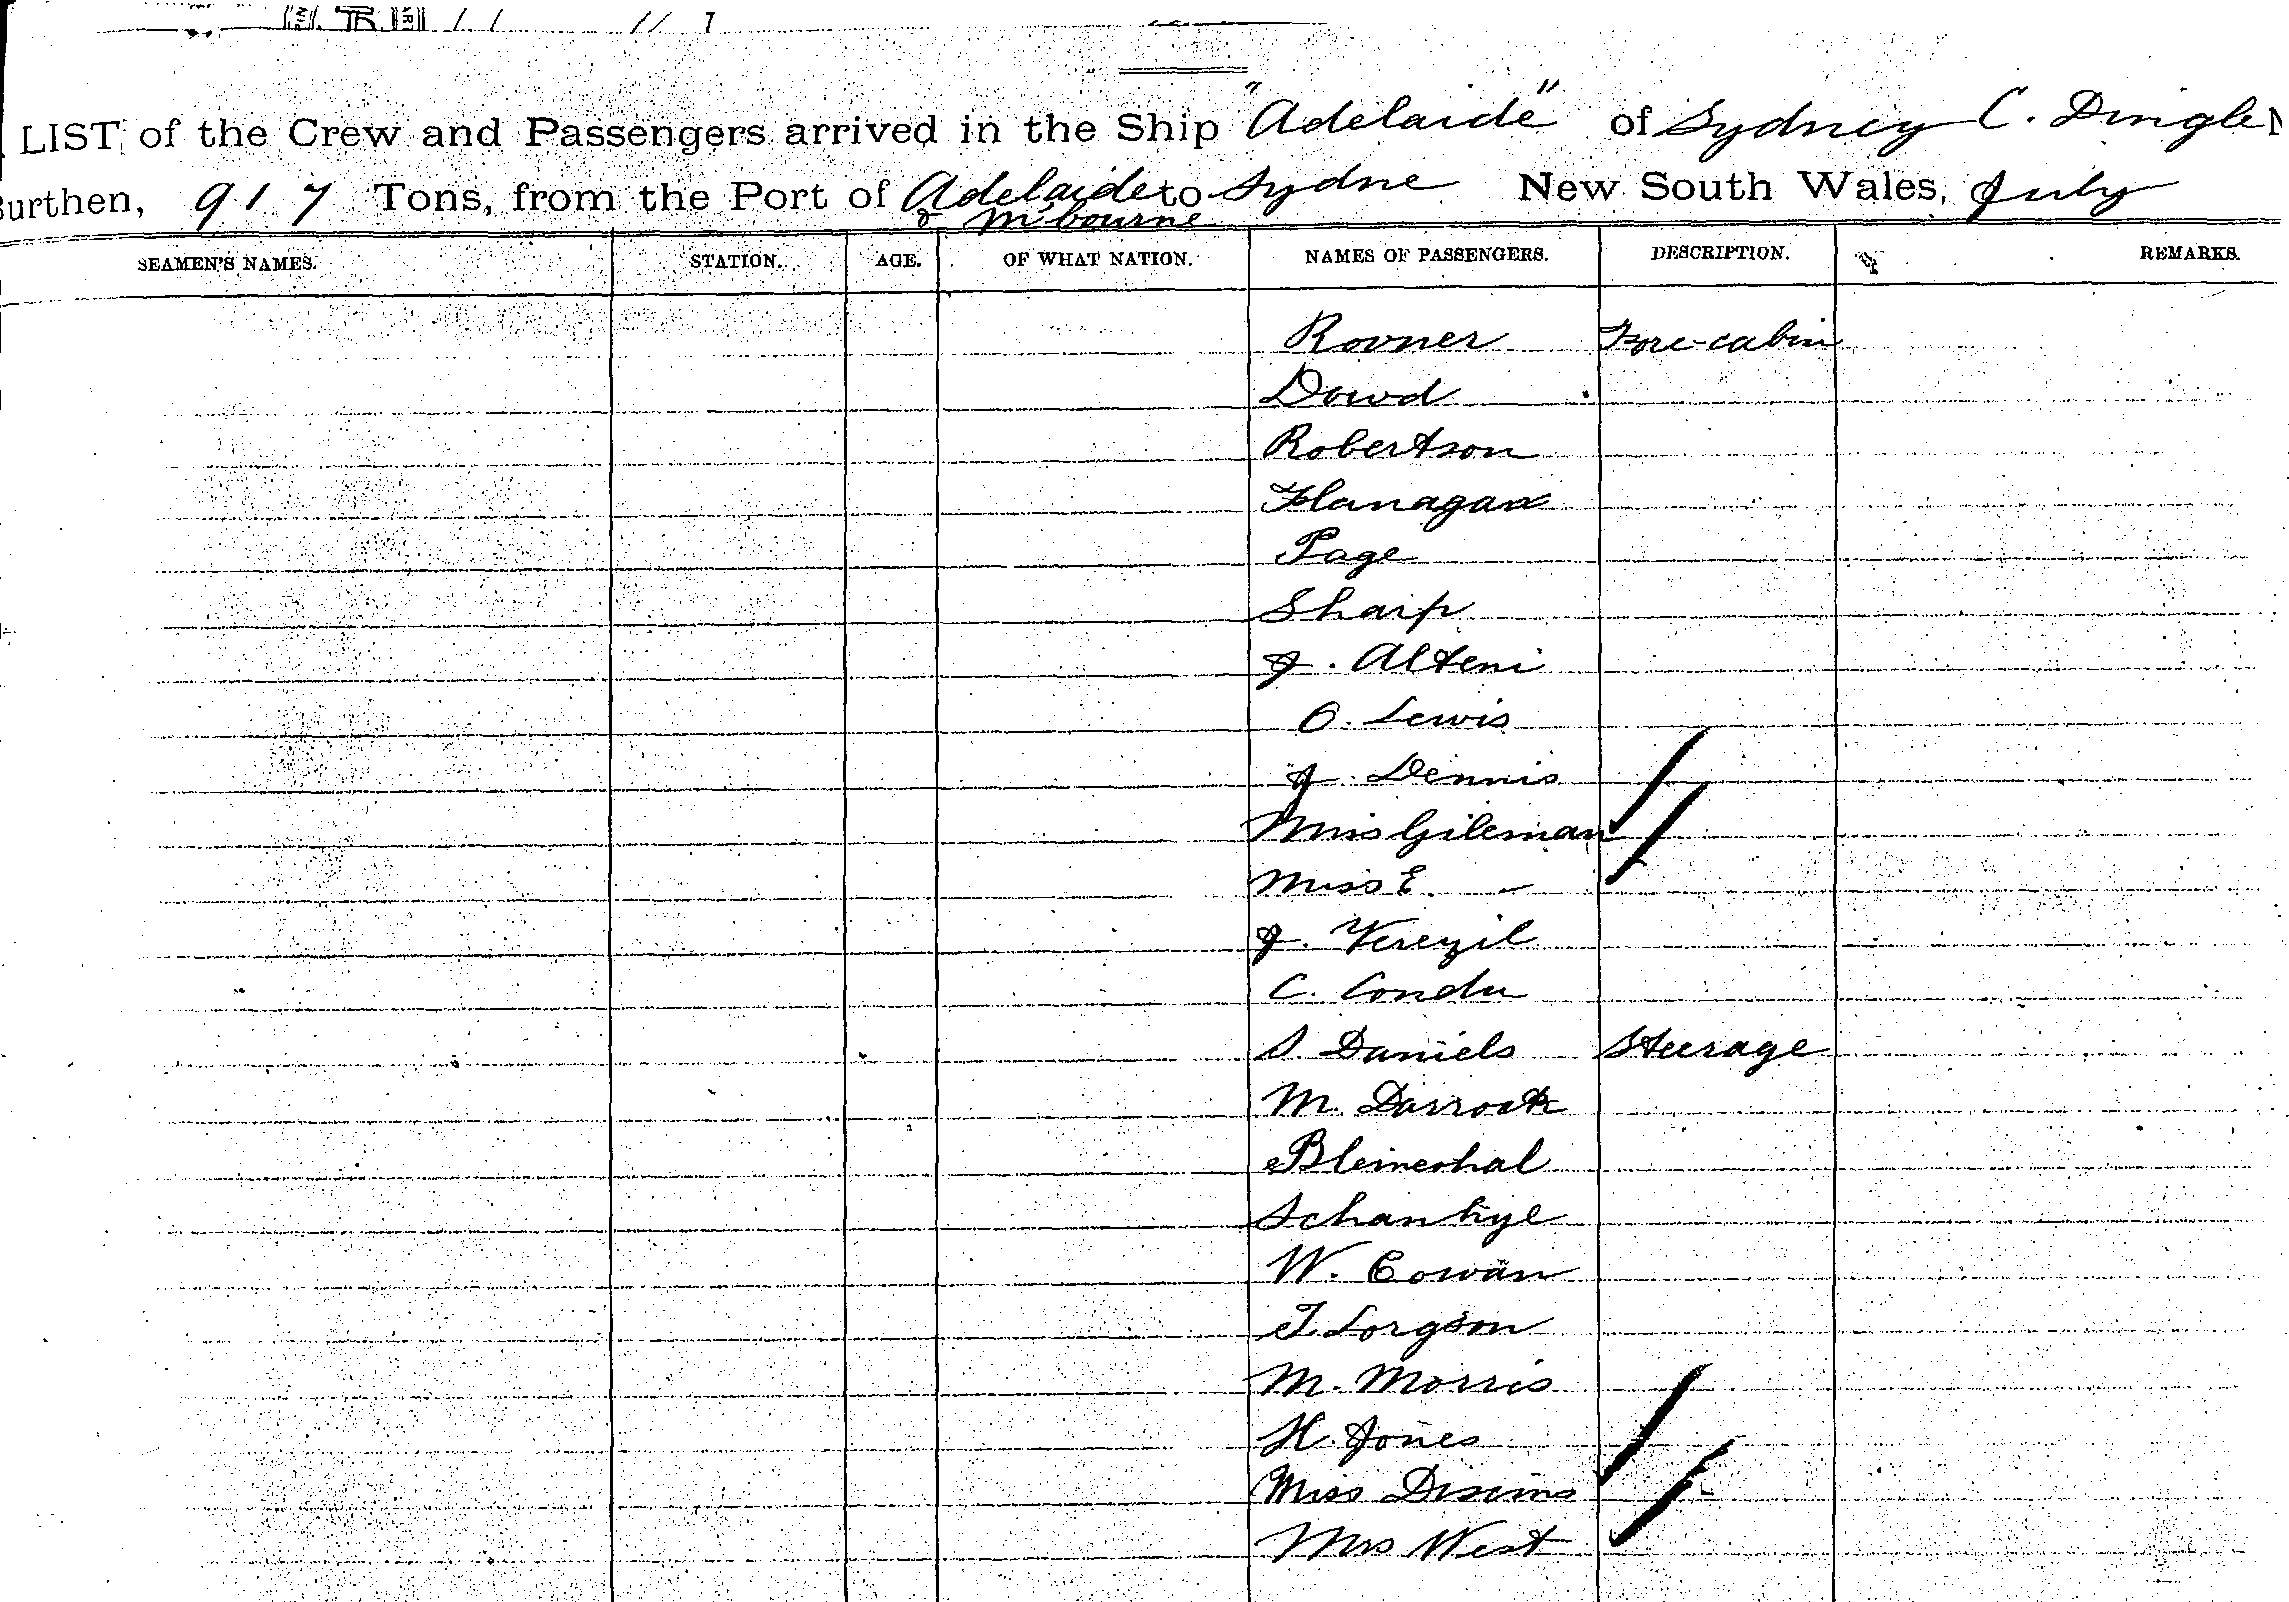 LIST of the Crew and Passengers arrived in the Ship "Adelaide" of Sydney C. Dingle
Burthen, 917 Tons, from the Port of Adelaide to Sydne New South Wales, July
& M'bourne
SEAMEN'S NAMES. STATION. AGE. OF WHAT NATION. NAMES OF PASSENGERS. DESCRIPTION. REMARKS.
Rovner Fore-cabin
Dowd
Robertson
Flanagan
Page
Sharp
J. Alteni
O. Lewis
J. Dennis
Miss Gileman
Miss E. -
J. Verezil
C. Condu
S. Daniels Steerage
M. Darrock
Bleimerhal
Schankye
W. Cowan
T. Lorgson
M. Morris
H. Jones
Miss
Mrs West